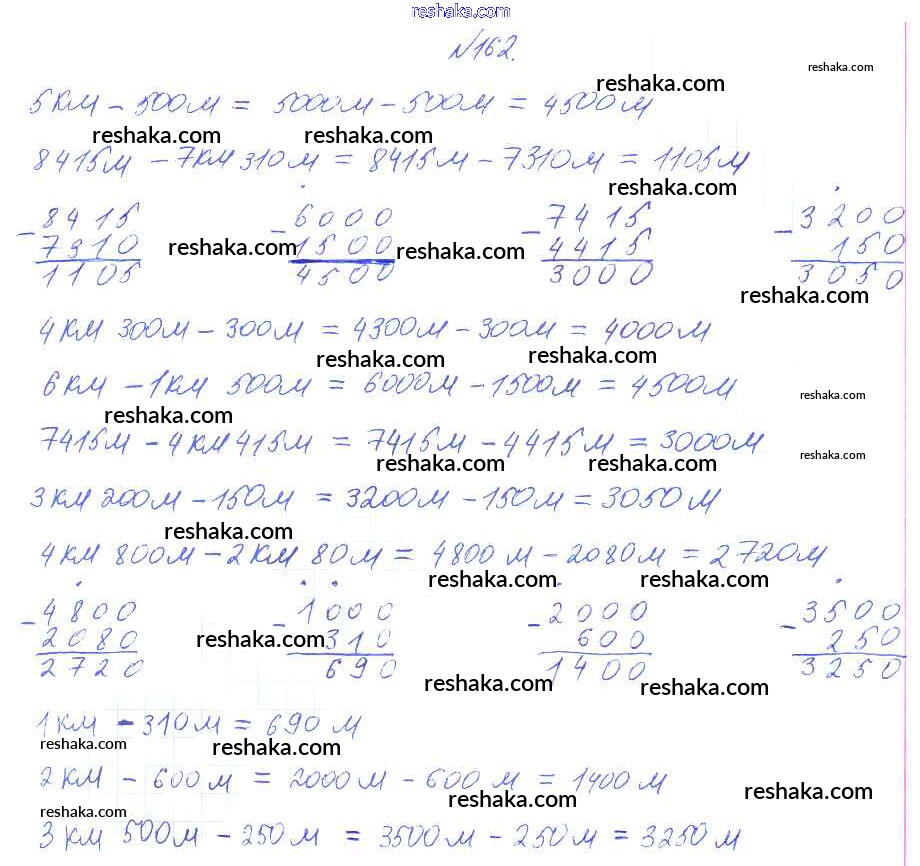 reshaka.com
№162.
reshaka.com
reshaka.com
5 км - 500 м = 5000 м - 500 м = 4500 м
reshaka.com reshaka.com
8415 м - 7 км 310 м = 8415 м - 7310 м = 1105 м
reshaka.com
- 8415 - 6000 - 7415 - 3200
7310 reshaka.com 1500 reshaka.com 4415 150
1105 4500 3000 3050
reshaka.com
4 км 300 м - 300 м = 4300 м - 300 м = 4000 м
reshaka.com reshaka.com
6 км - 1 км 500 м = 6000 м - 1500 м = 4500 м
reshaka.com
reshaka.com
7415 м - 4 км 415 м = 7415 м - 4415 м = 3000 м
reshaka.com reshaka.com reshaka.com
3 км 200 м - 150 м = 3200 м - 150 м = 3050 м
reshaka.com
4 км 800 м - 2 км 80 м = 4800 м - 2080 м = 2720 м
reshaka.com reshaka.com
- 4800 - 1000 - 2000 - 3500
2080 reshaka.com 310 600 250
2720 690 1400 3250
reshaka.com reshaka.com
1 км - 310 м = 690 м
reshaka.com reshaka.com
2 км - 600 м = 2000 м - 600 м = 1400 м
reshaka.com reshaka.com reshaka.com
3 км 500 м - 250 м = 3500 м - 250 м = 3250 м